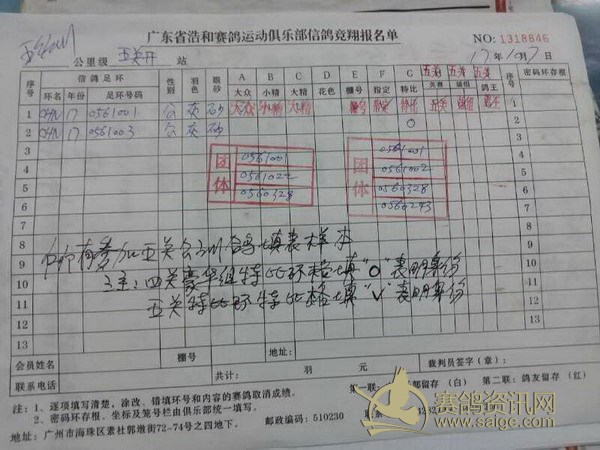 广东省浩和赛鸽运动俱乐部信鸽竞翔报名单
NO: 1318846
公里级 五关开 站
17年10月7日
序号 信鸽足环 性别 羽色 眼砂 A B C D E F G 五关 五关 五关 序号 密码环存根
环名 年份 足环号码 大众 小精 大精 花色 棚号 指定 特比 鸽王
1 CHN 17 0561001 灰 砂 大众 小精 大精 棚号 指定 特比 鸽王 1
2 CHN 17 0561003 灰 砂 O 2
3 3
4 4
5 5
6 6
7 7
8 8
9 9
10 10
11 11
12 12
13 13
团体
0561001
0561022
0560328
团体
0561001
0561002
0560328
0560243
所有参加五关会训鸽填表样本
注:四关豪华组特比环格填"O"表明身份
五关特比环特比格填"V"表明身份
会员姓名 棚号 地址: 裁判员签字(章):
联系电话 共计: 羽 元
第一联: 留存 (白) 第二联: 鸽友留存 (红)
注: 1、逐项填写清楚,涂改、错填环号和内容的赛鸽取消成绩。
2、密码环存根、坐标及笼号栏由俱乐部统一填写。
地址: 广州市海珠区素社郭墩街72-74号之四地下。
邮政编码: 510230
赛鸽资讯网
www.saige.com